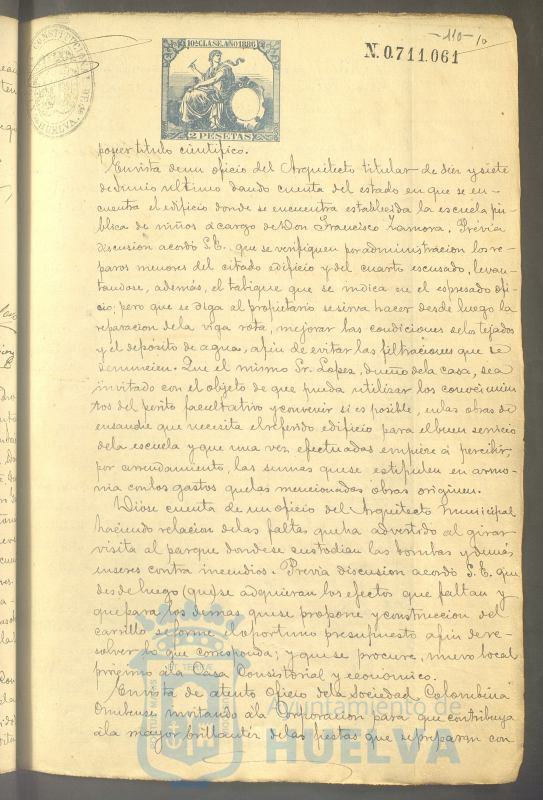 -110- 10
N. 0.711.061
10ª CLASE. AÑO 1886
2 PESETAS
CONSTITUCIONAL DE HUELVA
poseer titulo cientifico.
En vista de un oficio del Arquitecto titular de diez y siete
de Junio ultimo dando cuenta del estado en que se en-
cuentra el edificio donde se encuentra establecida la escuela pú-
blica de niños a cargo de Don Francisco Zamora. Prévia
discusion acordó S.E. que se verifiquen por administracion los re-
paros menores del citado edificio y del cuarto escusado, levan-
tandose, además, el tabique que se indica en el espresado ofi-
cio; pero que se diga al propietario se sirva hacer desde luego la
reparacion de la viga rota, mejorar las condiciones de los tejados
y el deposito de agua, afin de evitar las filtraciones que se
denuncien. Que el mismo Sr. Lopez, dueño de la casa, sea
invitado con el objeto de que pueda utilizar los conocimien
tos del perito facultativo y convenir si es posible, en las obras de
ensanche que necesita el referido edificio para el buen servicio
de la escuela y que una vez efectuadas empiece á percibir,
por arrendamiento, las sumas que se estipulen en armo-
nia con los gastos que las mencionadas obras originen.
Diose cuenta de un oficio del Arquitecto municipal
haciendo relacion de las faltas que ha advertido al girar
visita al parque donde se custodian las bombas y demas
enseres contra incendios. Prévia discusion acordó S.E. que
desde luego (que) se adquieran los efectos que faltan y
que para los demas que se propone y construccion del
carrillo se forme el oportuno presupuesto afin de re-
solver lo que corresponda; y que se procure, nuevo local
proximo á la Casa Consistorial y economico.
En vista de atento oficio de la Sociedad Colombina
Onubense invitando á la Corporacion para que contribuya
á la mayor brillantéz de las fiestas que se preparan con
Ayuntamiento de
HUELVA